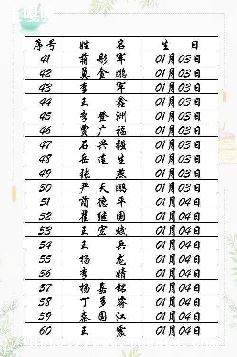 序号 姓 名 生 日
41 蒋彭军 01月03日
42 莫金鹏 01月03日
43 李 军 01月03日
44 王 鑫 01月03日
45 李登洲 01月03日
46 贾广福 01月03日
47 石兴强 01月03日
48 岳连生 01月03日
49 张 燕 01月03日
50 尹天鹏 01月03日
51 蔺德平 01月04日
52 瞿继国 01月04日
53 王宏斌 01月04日
54 王 兵 01月04日
55 杨 龙 01月04日
56 李 婧 01月04日
57 杨嘉铭 01月04日
58 丁多睿 01月04日
59 秦国江 01月04日
60 王 震 01月04日